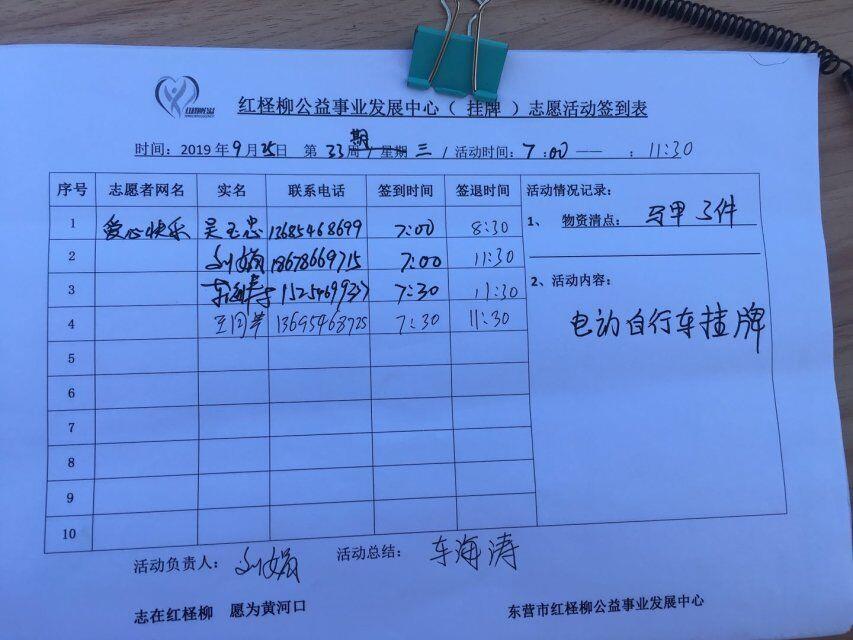 红柽柳公益事业发展中心（ 挂牌 ）志愿活动签到表
时间：2019年9月25日 第33期周/星期三/活动时间：7:00—— : 11:30
序号 志愿者网名 实名 联系电话 签到时间 签退时间 活动情况记录：
1 爱心快乐 吴玉忠 13685468699 7:00 8:30
1、 物资清点： 马甲3件
2 刘娟 18678669715 7:00 11:30
3 车海涛 7:30 11:30
2、活动内容：
4 13695468725 7:30 11:30
电动自行车挂牌
5
6
7
8
9
10
活动负责人：刘娟 活动总结：车海涛
志在红柽柳 愿为黄河口 东营市红柽柳公益事业发展中心